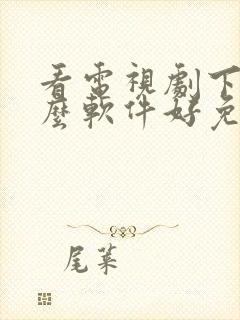 看電視劇下
麼軟件好免
尾葉